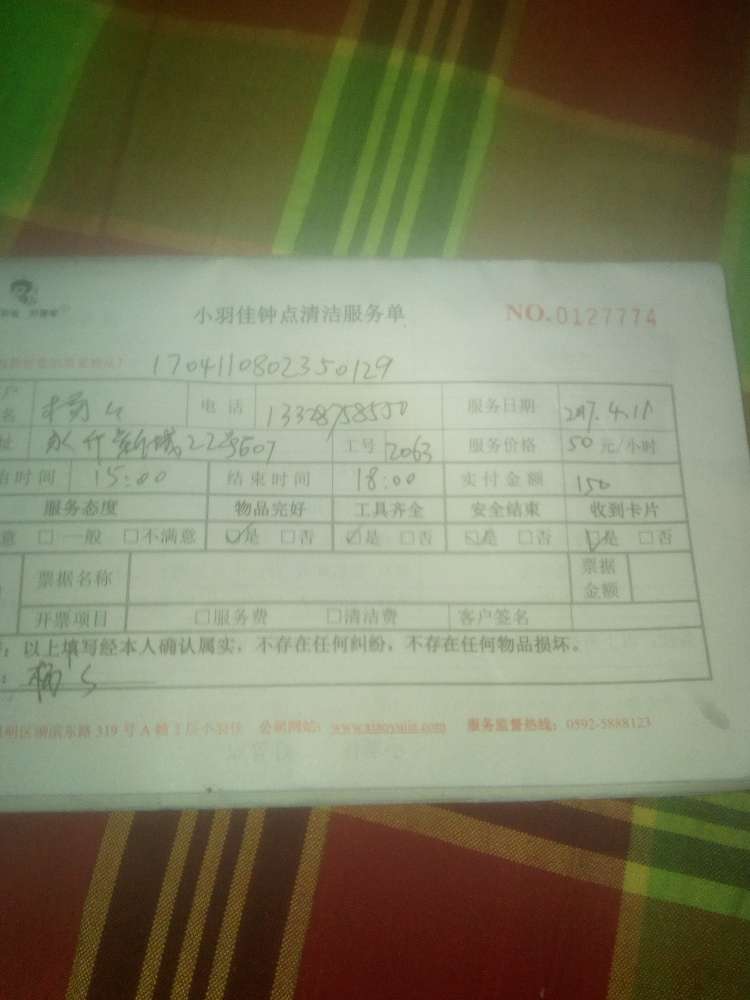 小羽佳钟点清洁服务单 NO.0127774
1704110802350129
名 杨 电话 服务日期 2017.4.11
址 22号607 工号 2063 服务价格 50 元/小时
时间 15:00 结束时间 18:00 实付金额 150
服务态度 物品完好 工具齐全 安全结束 收到卡片
意 □一般 □不满意 ☑是 □否 ☑是 □否 ☑是 □否 ☑是 □否
票据名称 票据金额
开票项目 □服务费 □清洁费 客户签名
：以上填写经本人确认属实，不存在任何纠纷，不存在任何物品损坏。
： 杨
明区湖滨东路 319 号 A 幢 1 层小羽佳 公司网站： 服务监督热线：0592-5888123